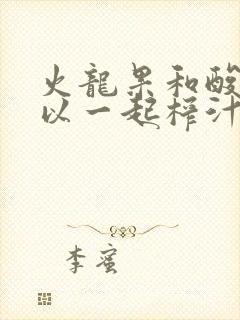 火龙果和酸
以一起榨汁
李蜜